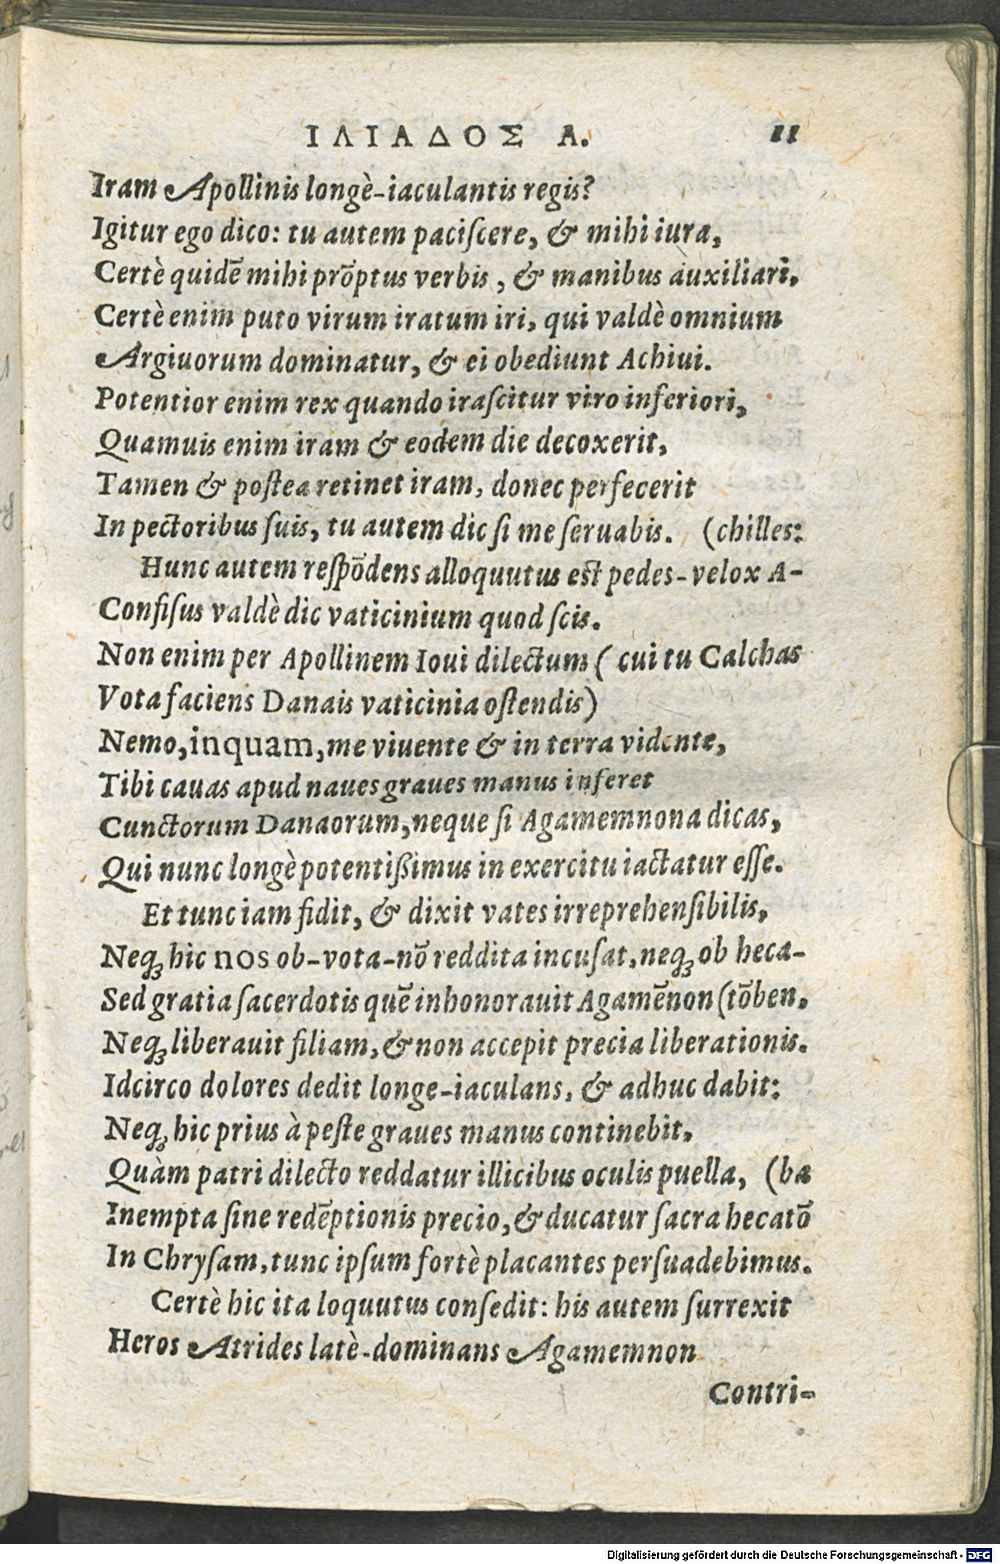 ΙΛΙΑΔΟΣ Α. 11
Iram Apollinis longè-iaculantis regis?
Igitur ego dico: tu autem paciſcere, & mihi iura,
Certè quidē mihi prōptus verbis, & manibus auxiliari.
Certè enim puto virum iratum iri, qui valdè omnium
Argiuorum dominatur, & ei obediunt Achiui.
Potentior enim rex quando iraſcitur viro inferiori,
Quamuis enim iram & eodem die decoxerit,
Tamen & poſtea retinet iram, donec perfecerit
In pectoribus ſuis, tu autem dic ſi me ſeruabis. (chilles:
Hunc autem reſpōdens alloquutus eſt pedes-velox A-
Confiſus valdè dic vaticinium quod ſcis.
Non enim per Apollinem Ioui dilectum ( cui tu Calchas
Vota faciens Danais vaticinia oſtendis)
Nemo, inquam, me viuente & in terra vidente,
Tibi cauas apud naues graues manus inferet
Cunctorum Danaorum, neque ſi Agamemnona dicas,
Qui nunc longè potentißimus in exercitu iactatur eſſe.
Et tunc iam fidit, & dixit vates irreprehenſibilis,
Neqꝫ hic nos ob-vota-nō reddita incuſat, neqꝫ ob heca-
Sed gratia ſacerdotis quē inhonorauit Agamēnon (tōben.
Neqꝫ liberauit filiam, & non accepit precia liberationis.
Idcirco dolores dedit longe-iaculans, & adhuc dabit:
Neqꝫ hic prius à peſte graues manus continebit,
Quàm patri dilecto reddatur illicibus oculis puella, (ba
Inempta ſine redēptionis precio, & ducatur ſacra hecatō
In Chryſam, tunc ipſum fortè placantes perſuadebimus.
Certè hic ita loquutus conſedit: his autem ſurrexit
Heros Atrides latè-dominans Agamemnon
Contri-
Digitalisierung gefördert durch die Deutsche Forschungsgemeinschaft - DFG